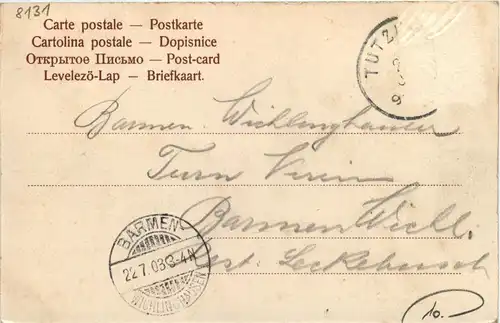 8131
Carte postale — Postkarte
Cartolina postale — Dopisnice
Открытое Письмо — Post-card
Levelező-Lap — Briefkaart.
TUTZ
Barmen. Wichlinghauser
Turn Verein
Barmen Wichl.
Rest. Leckebusch
BARMEN
22.7.03.3-4N
WICHLINGHAUSEN
10.-